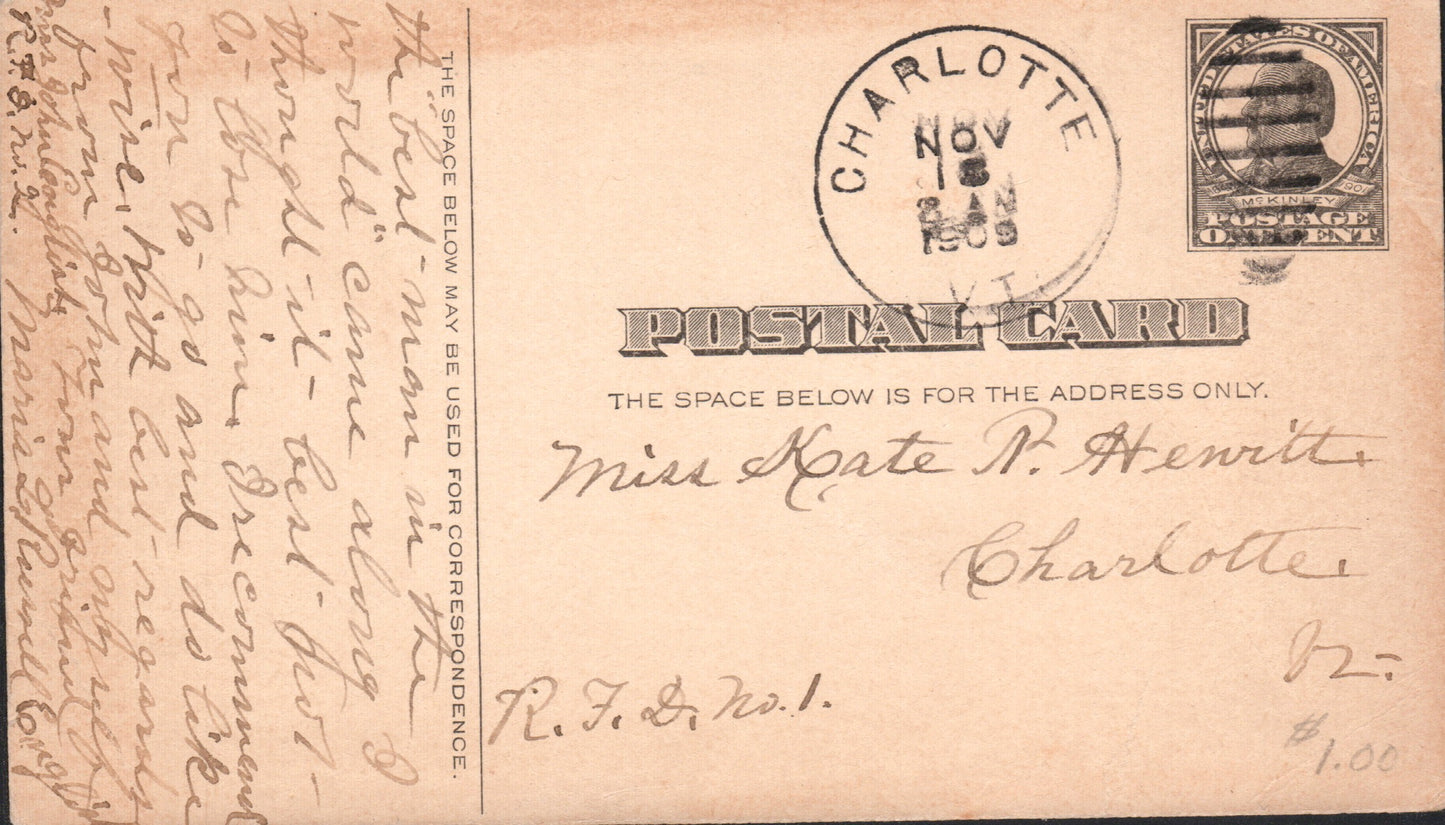 THE SPACE BELOW MAY BE USED FOR CORRESPONDENCE.
the "best man in the
world" came along I
thought it best not
to lose him. I recommend
you to go and do like
-wise. With best regards
from John and myself
Your friend
Mrs John
R.F.D. No. 2.
CHARLOTTE
NOV
1909
VT.
UNITED STATES OF AMERICA
1901
McKINLEY
POSTAGE
ONE CENT
POSTAL CARD
THE SPACE BELOW IS FOR THE ADDRESS ONLY.
Miss Kate P. Hewitt
Charlotte
Vt.
R. F. D. No. 1.
$1.00